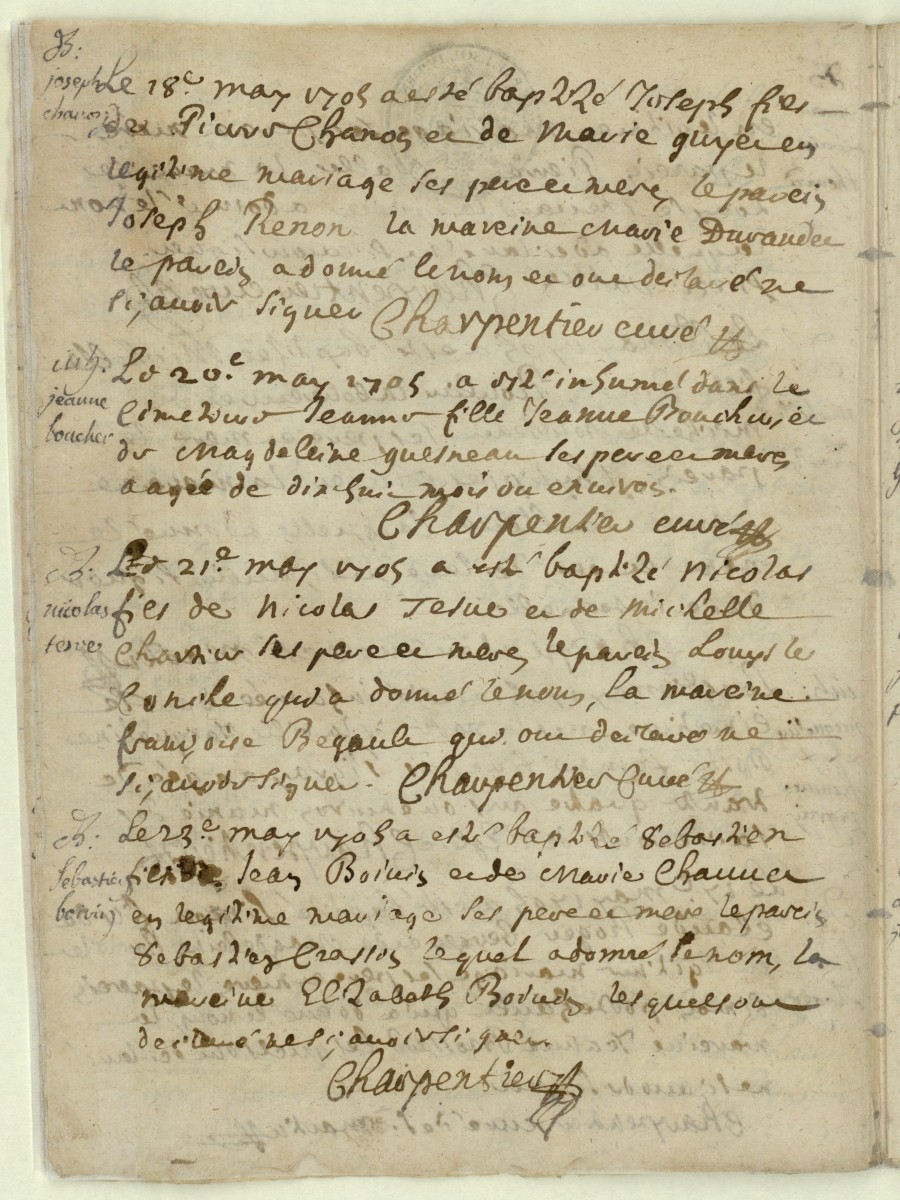 B:
joseph
chanoy
Le 18e may 1705 a esté baptizé Joseph fils
de Pierre Chanoy et de Marie guyet en
legitime mariage ses pere et mere, le parein
Joseph Renon la mareine Marie Durandet
le parein a donné le nom et ont declaré ne
sçavoir signer Charpentier curé
jeanne
boucher
Le 20e may 1705 a esté inhumé dans le
Cimetiere Jeanne fille Jeanne Boucher, et
de Magdeleine guesneau ses pere et mere
aagée de dixhuit mois ou environ.
Charpentier curé
B:
nicolas
tesne
Le 21e may 1705 a esté baptizé Nicolas
fils de Nicolas Tesne et de Michelle
ses pere et mere, le parein Louys le
qui a donné le nom, la mareine
françoise Begault qui ont declaré ne
sçavoir signer. Charpentier Curé
B:
Sebastien
boivin
Le 23e may 1705 a esté baptizé Sebastien
fils de Jean Boivin et de Marie
en legitime mariage ses pere et mere le parein
Sebastien Crasson lequel a donné le nom, la
mareine Elizabeth Boivin lesquels ont
declaré ne sçavoir signer.
Charpentier